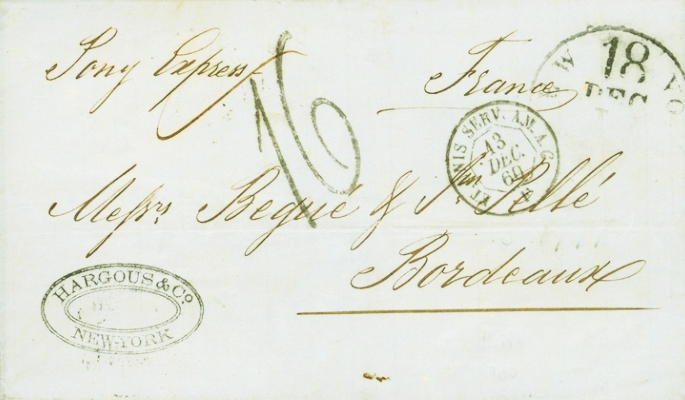 Pony Express
France
W YO
18
DEC
16
ET. UNIS SERV. AM. A. C.
13
DEC.
60
Messrs Begué &
Bordeaux
HARGOUS & Co.
NEW-YORK